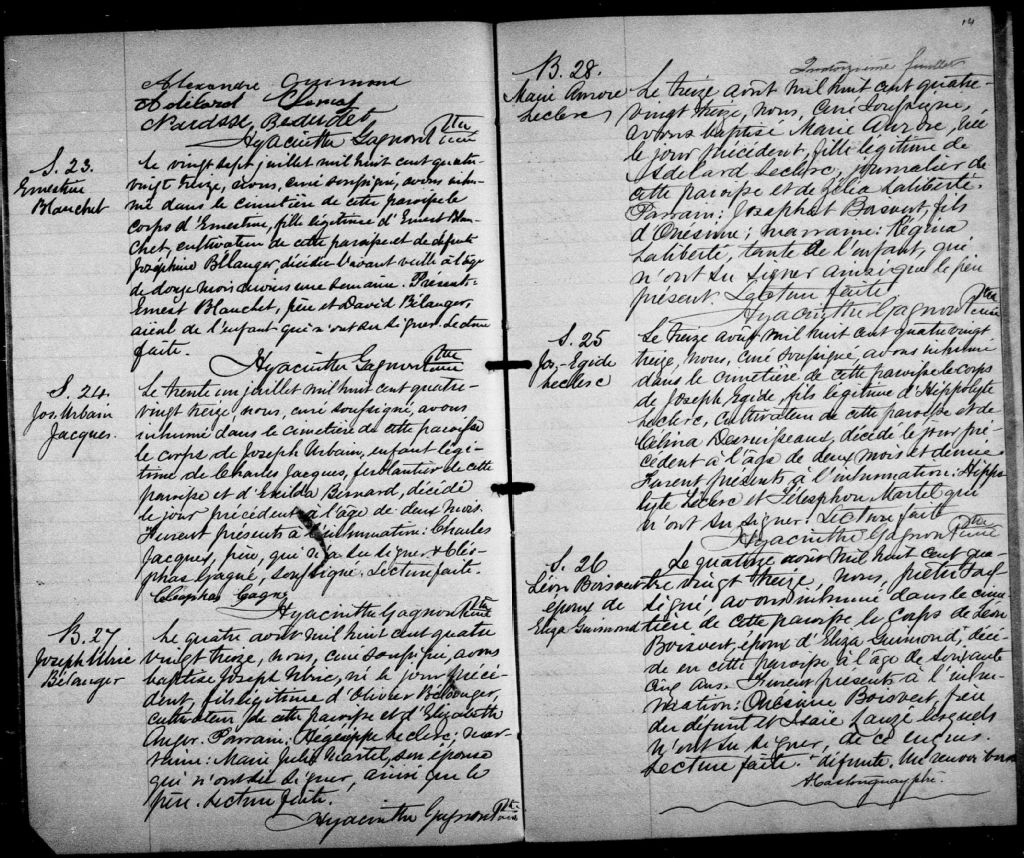 Alexandre Guimond
Adélard
Narcisse Bedudet,
Hyacinthe Gagnon Ptre curé
S. 23.
Ernestine
Blanchet
Le vingt sept juillet mil huit cent quatre-
vingt treize, nous, curé soussigné, avons inhu-
mé dans le cimetière de cette paroisse le
corps d'Ernestine, fille légitime d'Ernest Blan-
chet, cultivateur de cette paroisse et de défunte
Joséphine Bélanger, décédée l'avant veille à l'âge
de douze mois moins une semaine. Présents:
Ernest Blanchet, père et David Bélanger,
aieul de l'enfant qui n'ont su signer. Lecture
faite.
Hyacinthe Gagnon Ptre curé
S. 24.
Jos. Urbain
Jacques.
Le trente un juillet mil huit cent quatre-
vingt treize nous, curé soussigné, avons
inhumé dans le cimetière de cette paroisse
le corps de Joseph Urbain, enfant légi-
time de Charles Jacques, ferblantier de cette
paroisse et d'Exilda Bernard, décédé
le jour précédent à l'âge de deux mois.
Furent présents à l'inhumation: Charles
Jacques, père, qui n'a su signer & Cléo-
phas Gagné, soussigné. Lecture faite.
Cléophas Gagné
Hyacinthe Gagnon Ptre curé
B. 27
Joseph Ulric
Bélanger
Le quatre août mil huit cent quatre
vingt treize, nous, curé soussigné, avons
baptisé Joseph Ulric, né le jour précé-
dent, fils légitime d'Olivier Bélanger,
cultivateur de cette paroisse et d'Elizabeth
Auger. Parrain: Hegésippe Leclerc; mar-
raine: Marie Julie Martel, son épouse
qui n'ont su signer, ainsi que le
père. Lecture faite.
Hyacinthe Gagnon Ptre curé
14
Quatorzième feuillet
B. 28.
Marie Aurore
Leclerc
Le treize août mil huit cent quatre-
vingt treize, nous, curé soussigné,
avons baptisé Marie Aurore, née
le jour précédent, fille légitime de
Adélard Leclerc, journalier de
cette paroisse et de Célia Laliberté.
Parrain: Josaphat Boisvert, fils
d'Onésime; marraine: Régina
Laliberté, tante de l'enfant, qui
n'ont su signer ainsi que le père
présent. Lecture faite.
Hyacinthe Gagnon Ptre curé
S. 25
Jos.-Egide
Leclerc
Le treize août mil huit cent quatre vingt
treize, nous, curé soussigné, avons inhumé
dans le cimetière de cette paroisse le corps
de Joseph, Egide, fils légitime d'Hippolyte
Leclerc, cultivateur de cette paroisse et de
Célina Desruisseaux, décédé le jour pré-
cédent à l'âge de deux mois et demi.
Furent présents à l'inhumation: Hippo
lyte Leclerc et Télesphore Martel qui
n'ont su signer. Lecture faite.
Hyacinthe Gagnon Ptre curé
S. 26
Léon Boisvert
époux de
Eliza Guimond
Le quatorze août mil huit cent qua-
tre vingt treize, nous, prêtre sous
signé, avons inhumé dans le cime-
tière de cette paroisse le corps de Léon
Boisvert, époux d'Eliza Guimond, décé-
dé en cette paroisse à l'âge de soixante
cinq ans. Furent présents à l'inhu-
mation: Onésime Boisvert, frère
du défunt et Isaïe Lauzé lesquels
n'ont su signer, de ce enquis.
Lecture faite. défunte. Un renvoi bon